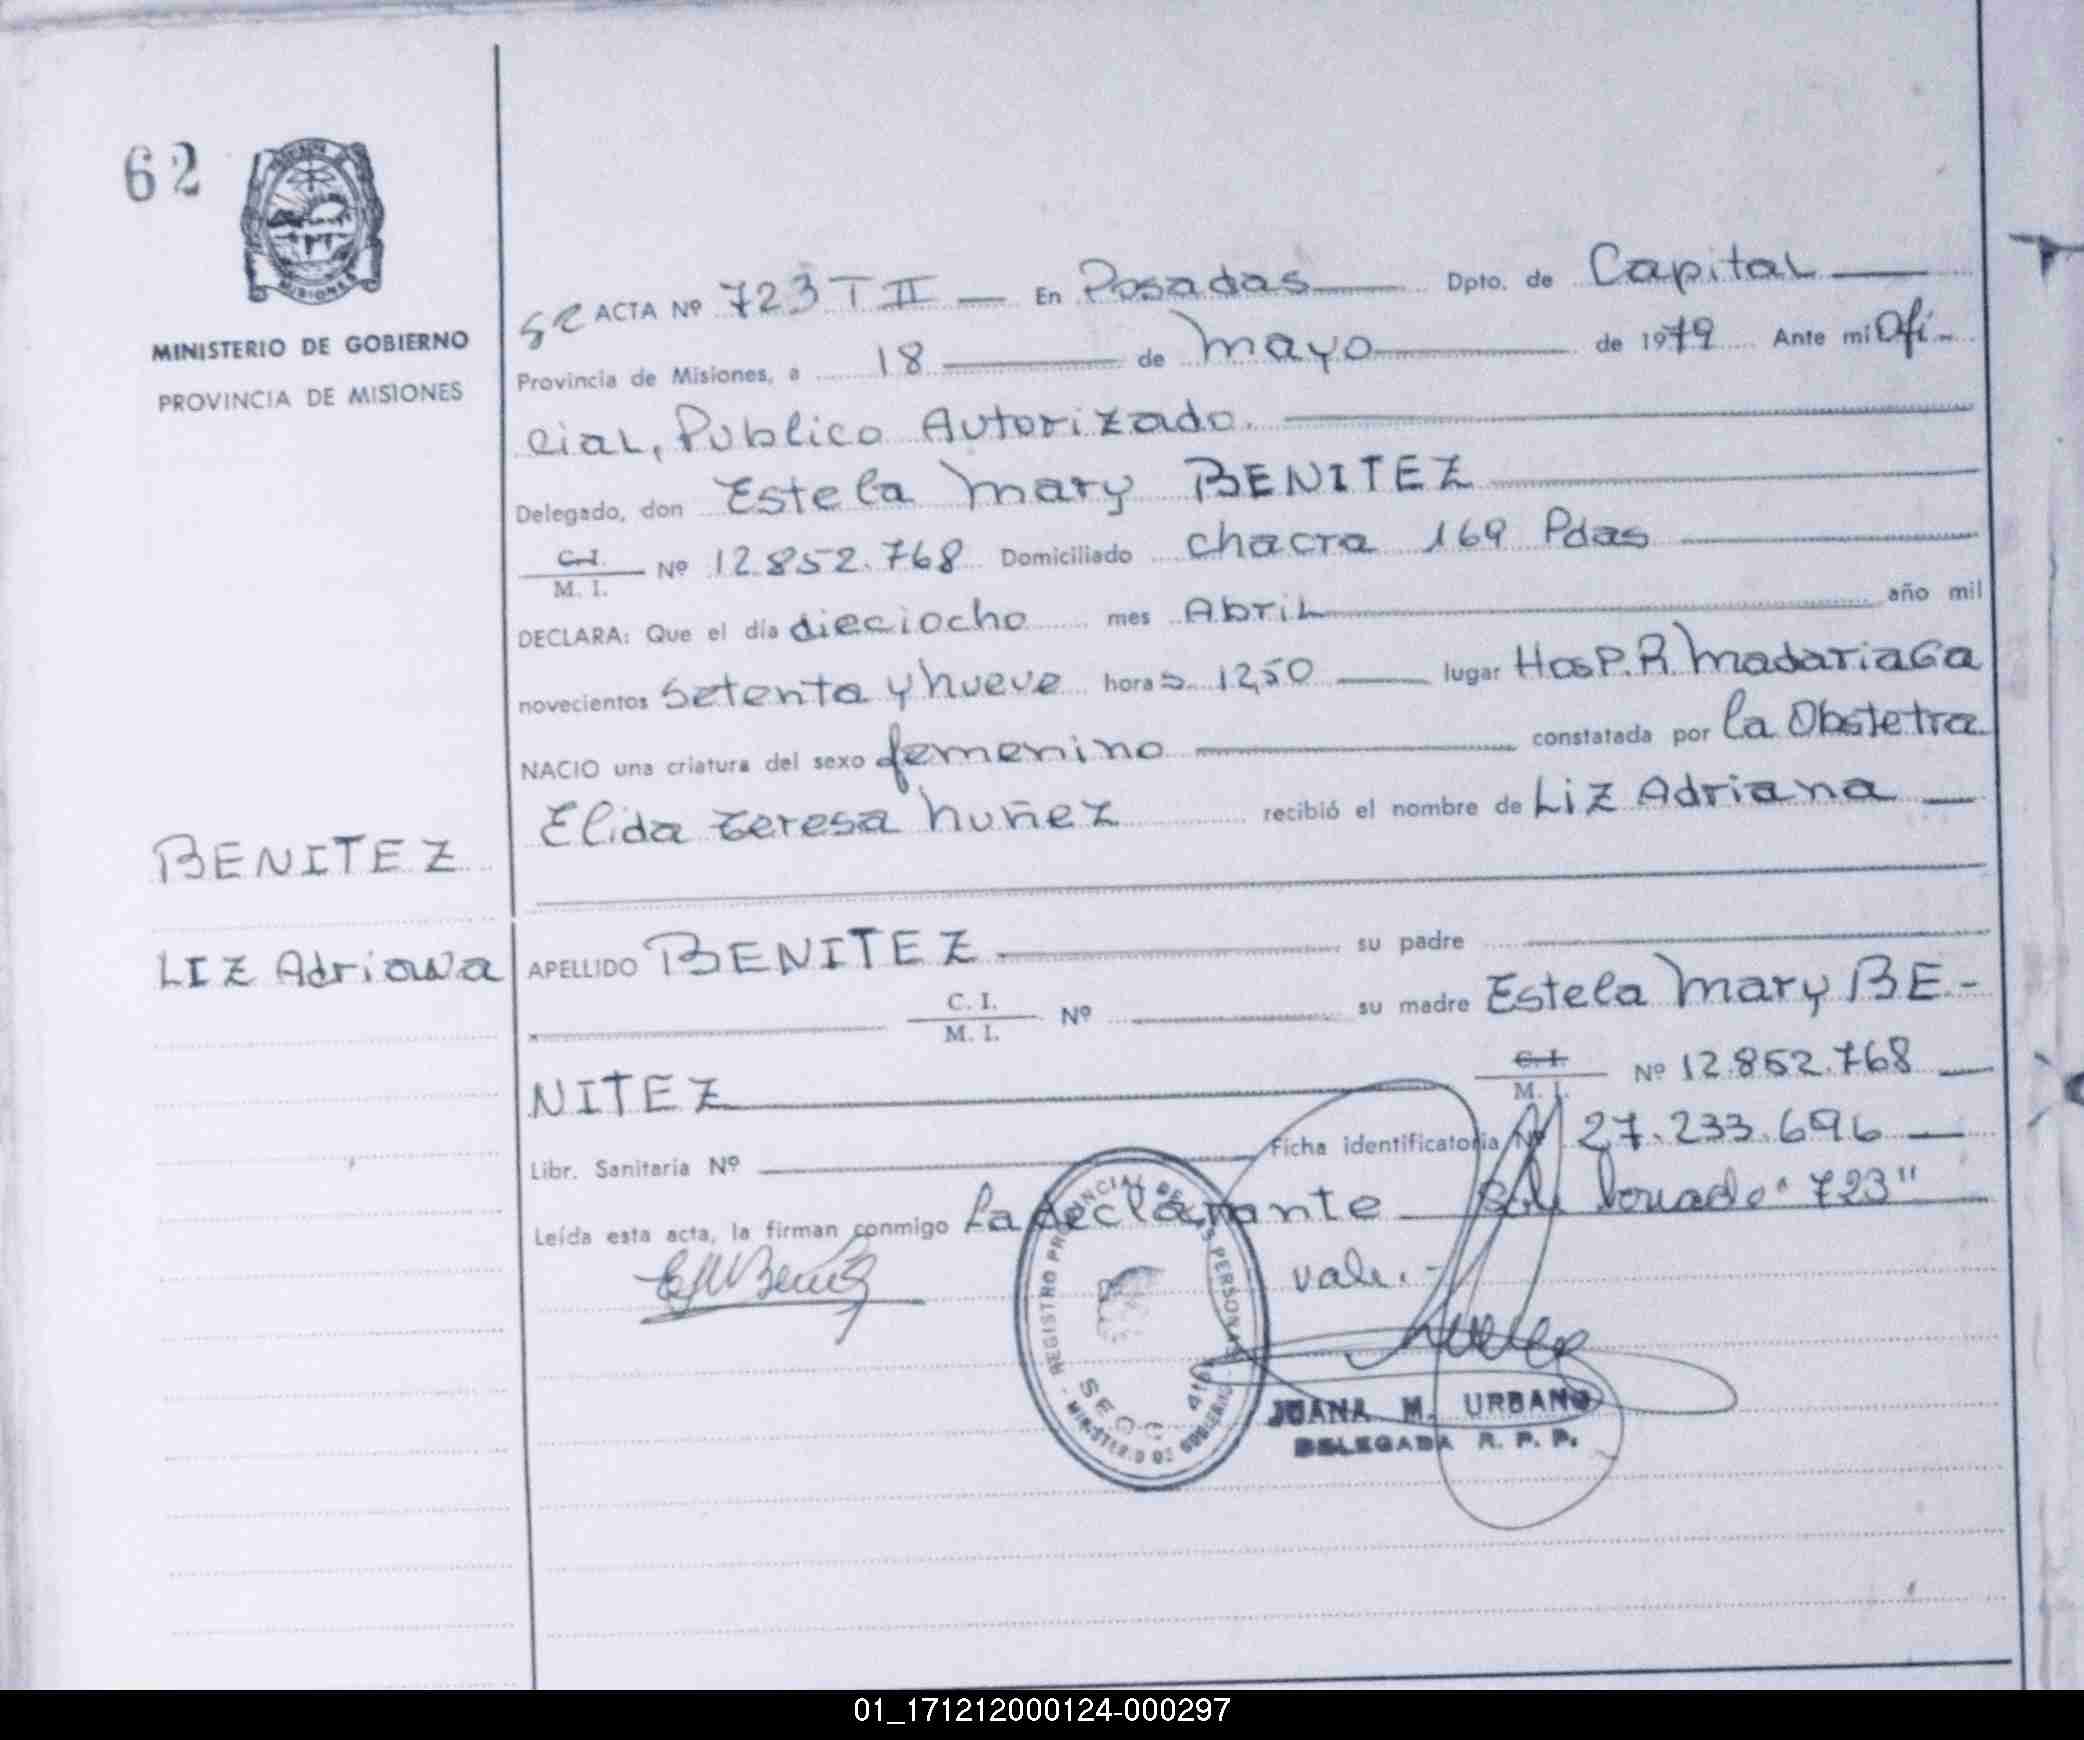 62
MINISTERIO DE GOBIERNO
PROVINCIA DE MISIONES
ACTA Nº 723 T II — En Posadas Dpto. de Capital
Provincia de Misiones, a 18 de Mayo de 1979 Ante mi Ofi-
cial, Publico Autorizado.
Delegado, don Estela Mary BENITEZ
C.I. / M. I. Nº 12.852.768 Domiciliado chacra 169 Pdas
DECLARA: Que el día dieciocho mes Abril año mil
novecientos Setenta y Nueve horas 12,50 lugar Hosp. R. Madariaga
NACIO una criatura del sexo femenino constatada por la Obstetra
Elida Teresa Nuñez recibió el nombre de Liz Adriana
BENITEZ
LIZ Adriana
APELLIDO BENITEZ su padre
C. I. / M. I. Nº su madre Estela Mary BE-
NITEZ C. I. / M. I. Nº 12.852.768
Libr. Sanitaria Nº Ficha identificatoria Nº 27.233.696
Leída esta acta, la firman conmigo La declarante borrado "723"
vale.-
REGISTRO PROVINCIAL DE LAS PERSONAS
SECC. 
MINISTERIO DE GOBIERNO
JUANA M. URBANO
DELEGADA R. P. P.
01_171212000124-000297